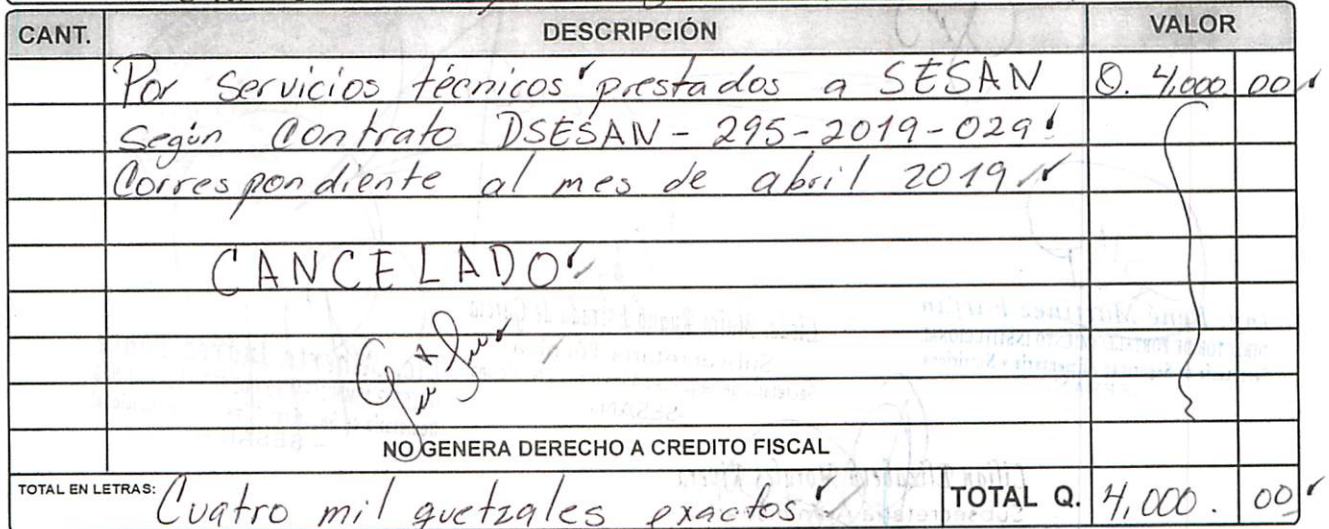 CANT. DESCRIPCIÓN VALOR
Por Servicios técnicos prestados a SESAN Q. 4,000 00
Según Contrato DSESAN - 295-2019-029
Correspondiente al mes de abril 2019
CANCELADO
NO GENERA DERECHO A CREDITO FISCAL
TOTAL EN LETRAS: Cuatro mil quetzales exactos TOTAL Q. 4,000. 00